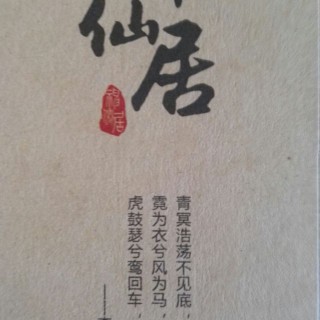 仙居
青冥浩荡不见底，
霓为衣兮风为马，
虎鼓瑟兮鸾回车，